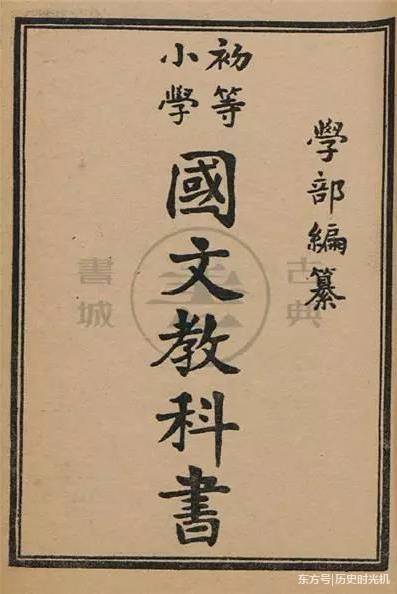 學部編纂
初等
小學
國文教科書
古典
書城
东方号|历史时光机